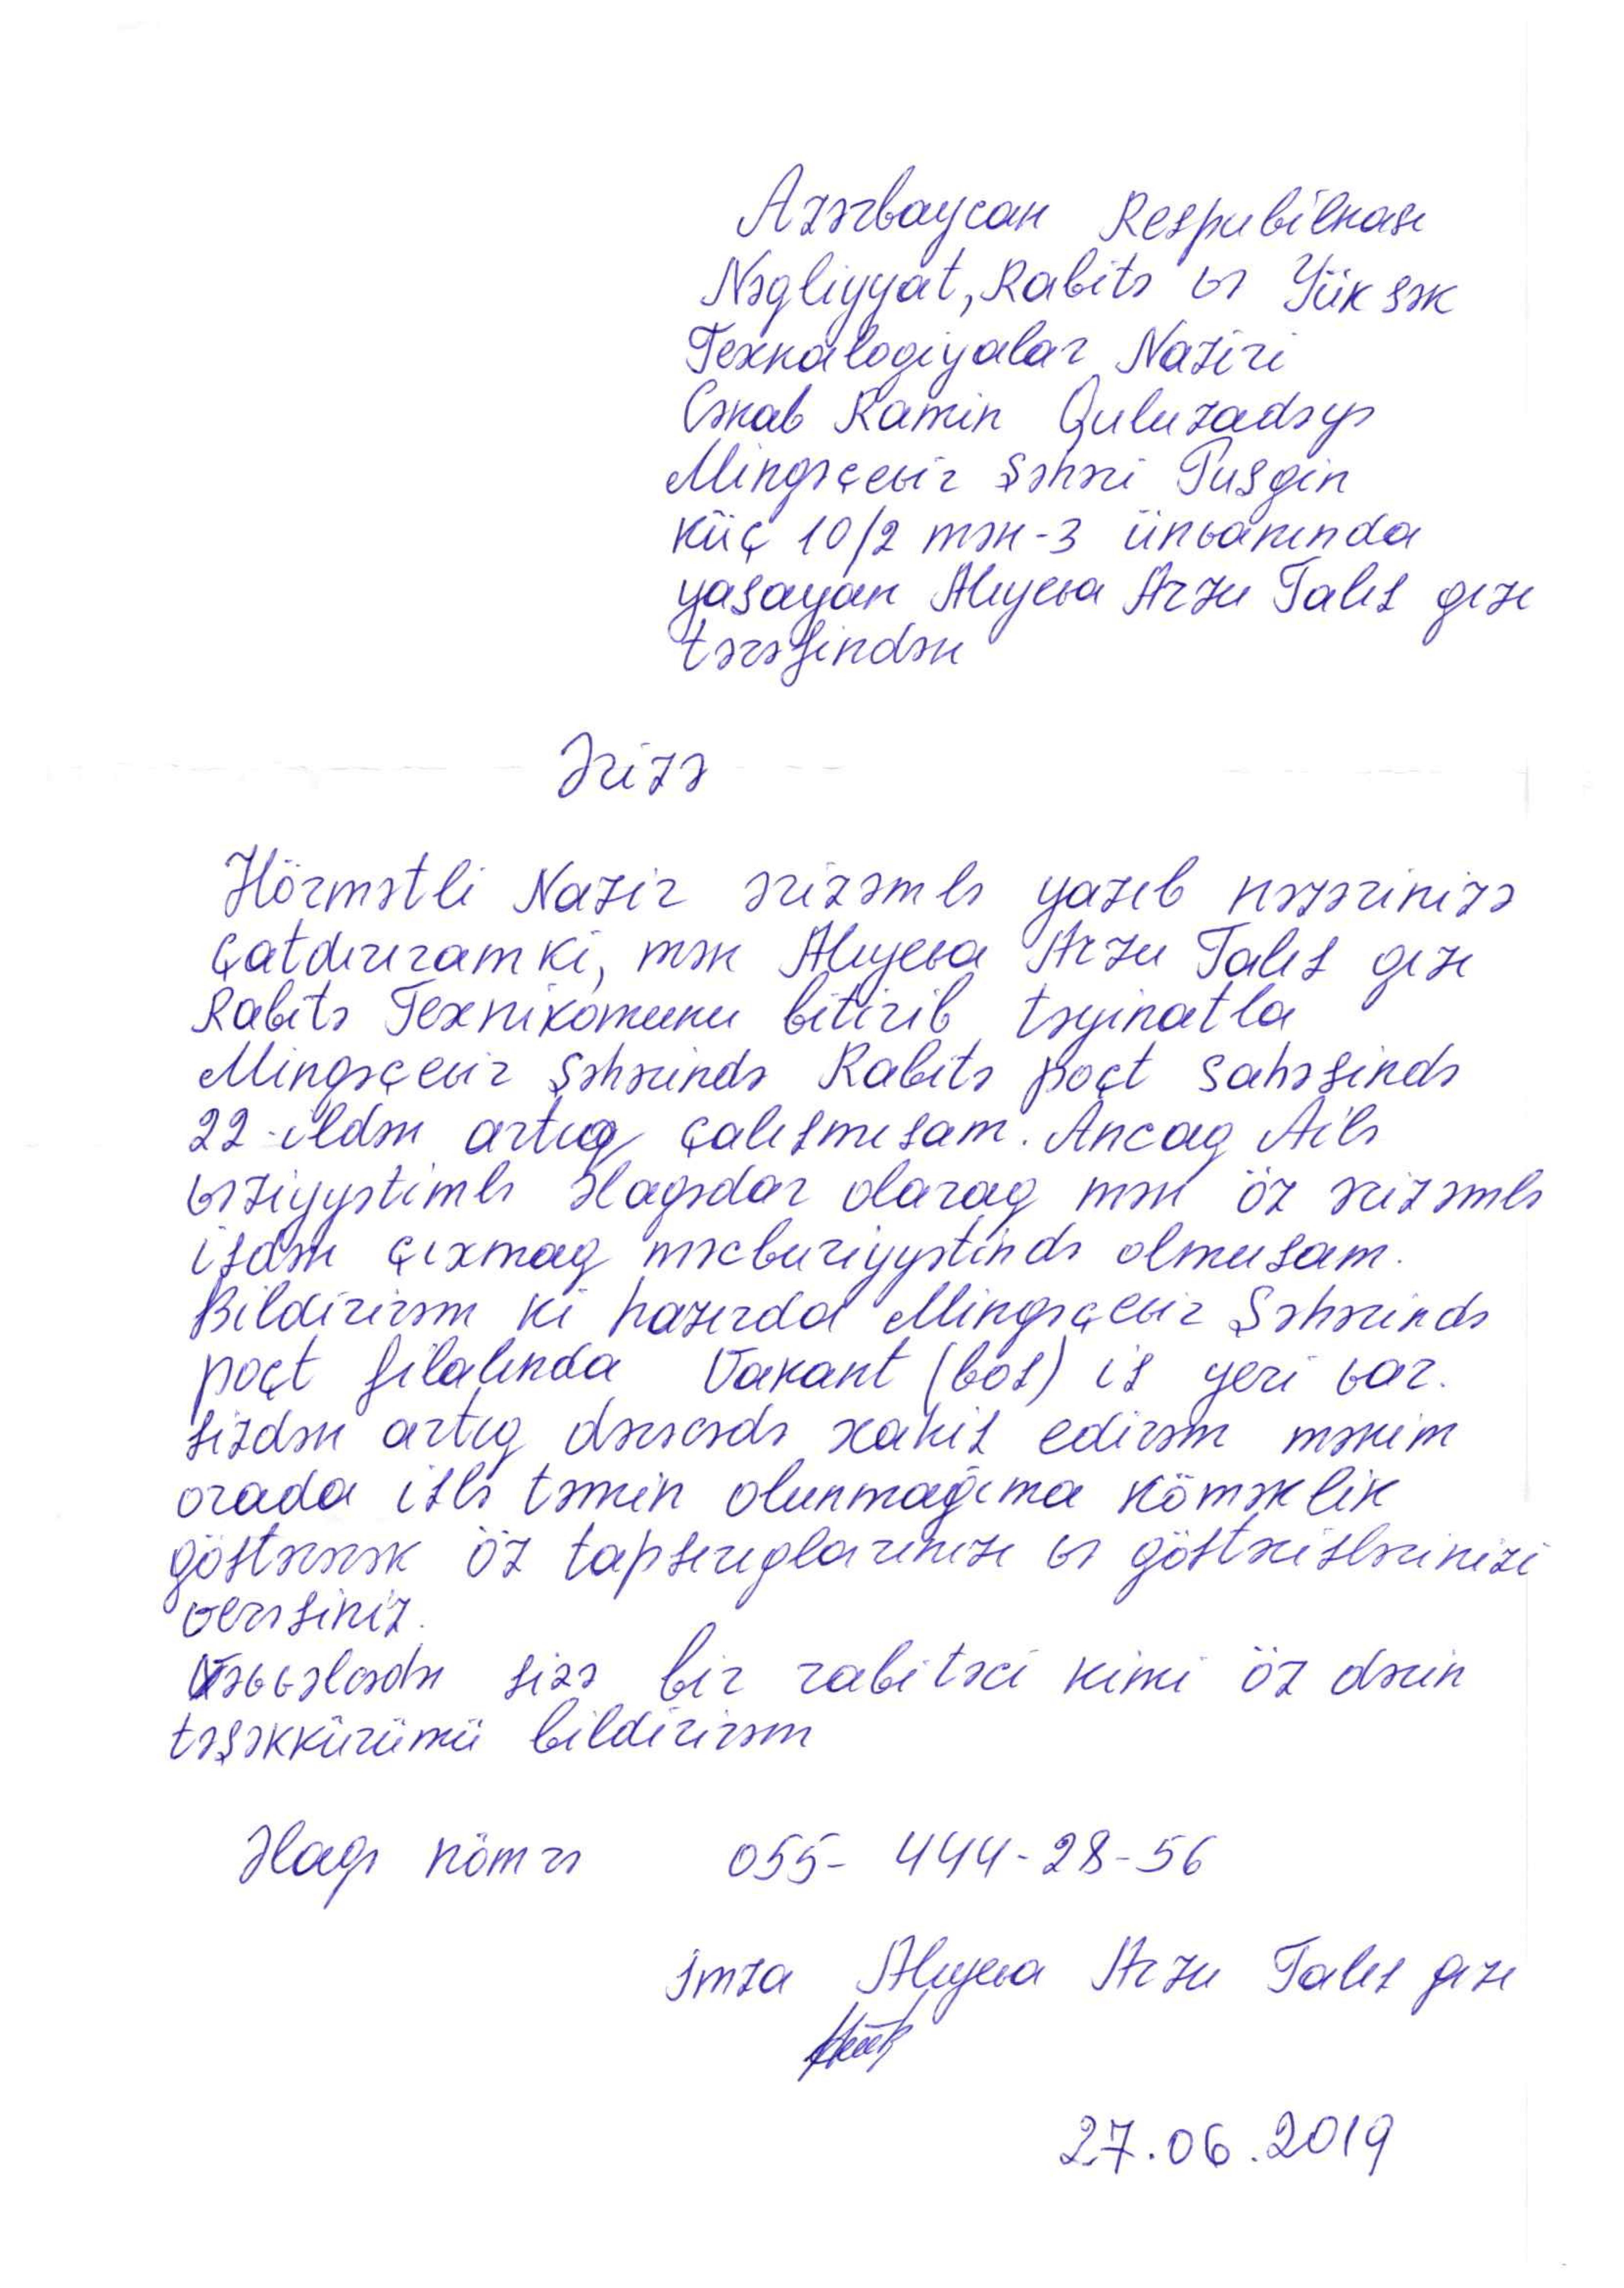 Azərbaycan Respubilkası
Nəgliyyat, Rabitə və Yüksək
Texnalogiyalar Naziri
Cənab Ramin Quluzadəyə
Mingəçevir Şəhəri Pusgin
Küç 10/2 mən-3 ünvanında
yasayan Alıyeva Arzu Talıs gızı
tərəfindən
Ərizə
Hörmətli Nazir ərizəmlə yazıb nəzərinizə
çatdırıram ki, mən Alıyeva Arzu Talıs gızı
Rabitə Texnikomunu bitirib təyinatla
Mingəçevir Şəhərində Rabitə poçt sahəsində
22-ildən artıq çalısmısam. Ancag Ailə
vəziyyətimlə əlagədar olarag mən öz ərizəmlə
isdən çıxmag məcburiyyətində olmusam.
Bildirirəm ki hazırda Mingəçevir Şəhərində
poçt filalında Vakant (bos) is yeri var.
sizdən artıg dərəcədə xahis edirəm mənim
orada islə təmin olunmağıma köməklik
göstərərək öz tapsırıglarınızı və göstərislərinizi
verəsiniz.
Əvvəlcədən sizə bir rabitəci kimi öz dərin
təşəkkürümü bildirirəm
Əlagə nömrə 055- 444-28-56
imza Alıyeva Arzu Talıs gızı
27.06.2019